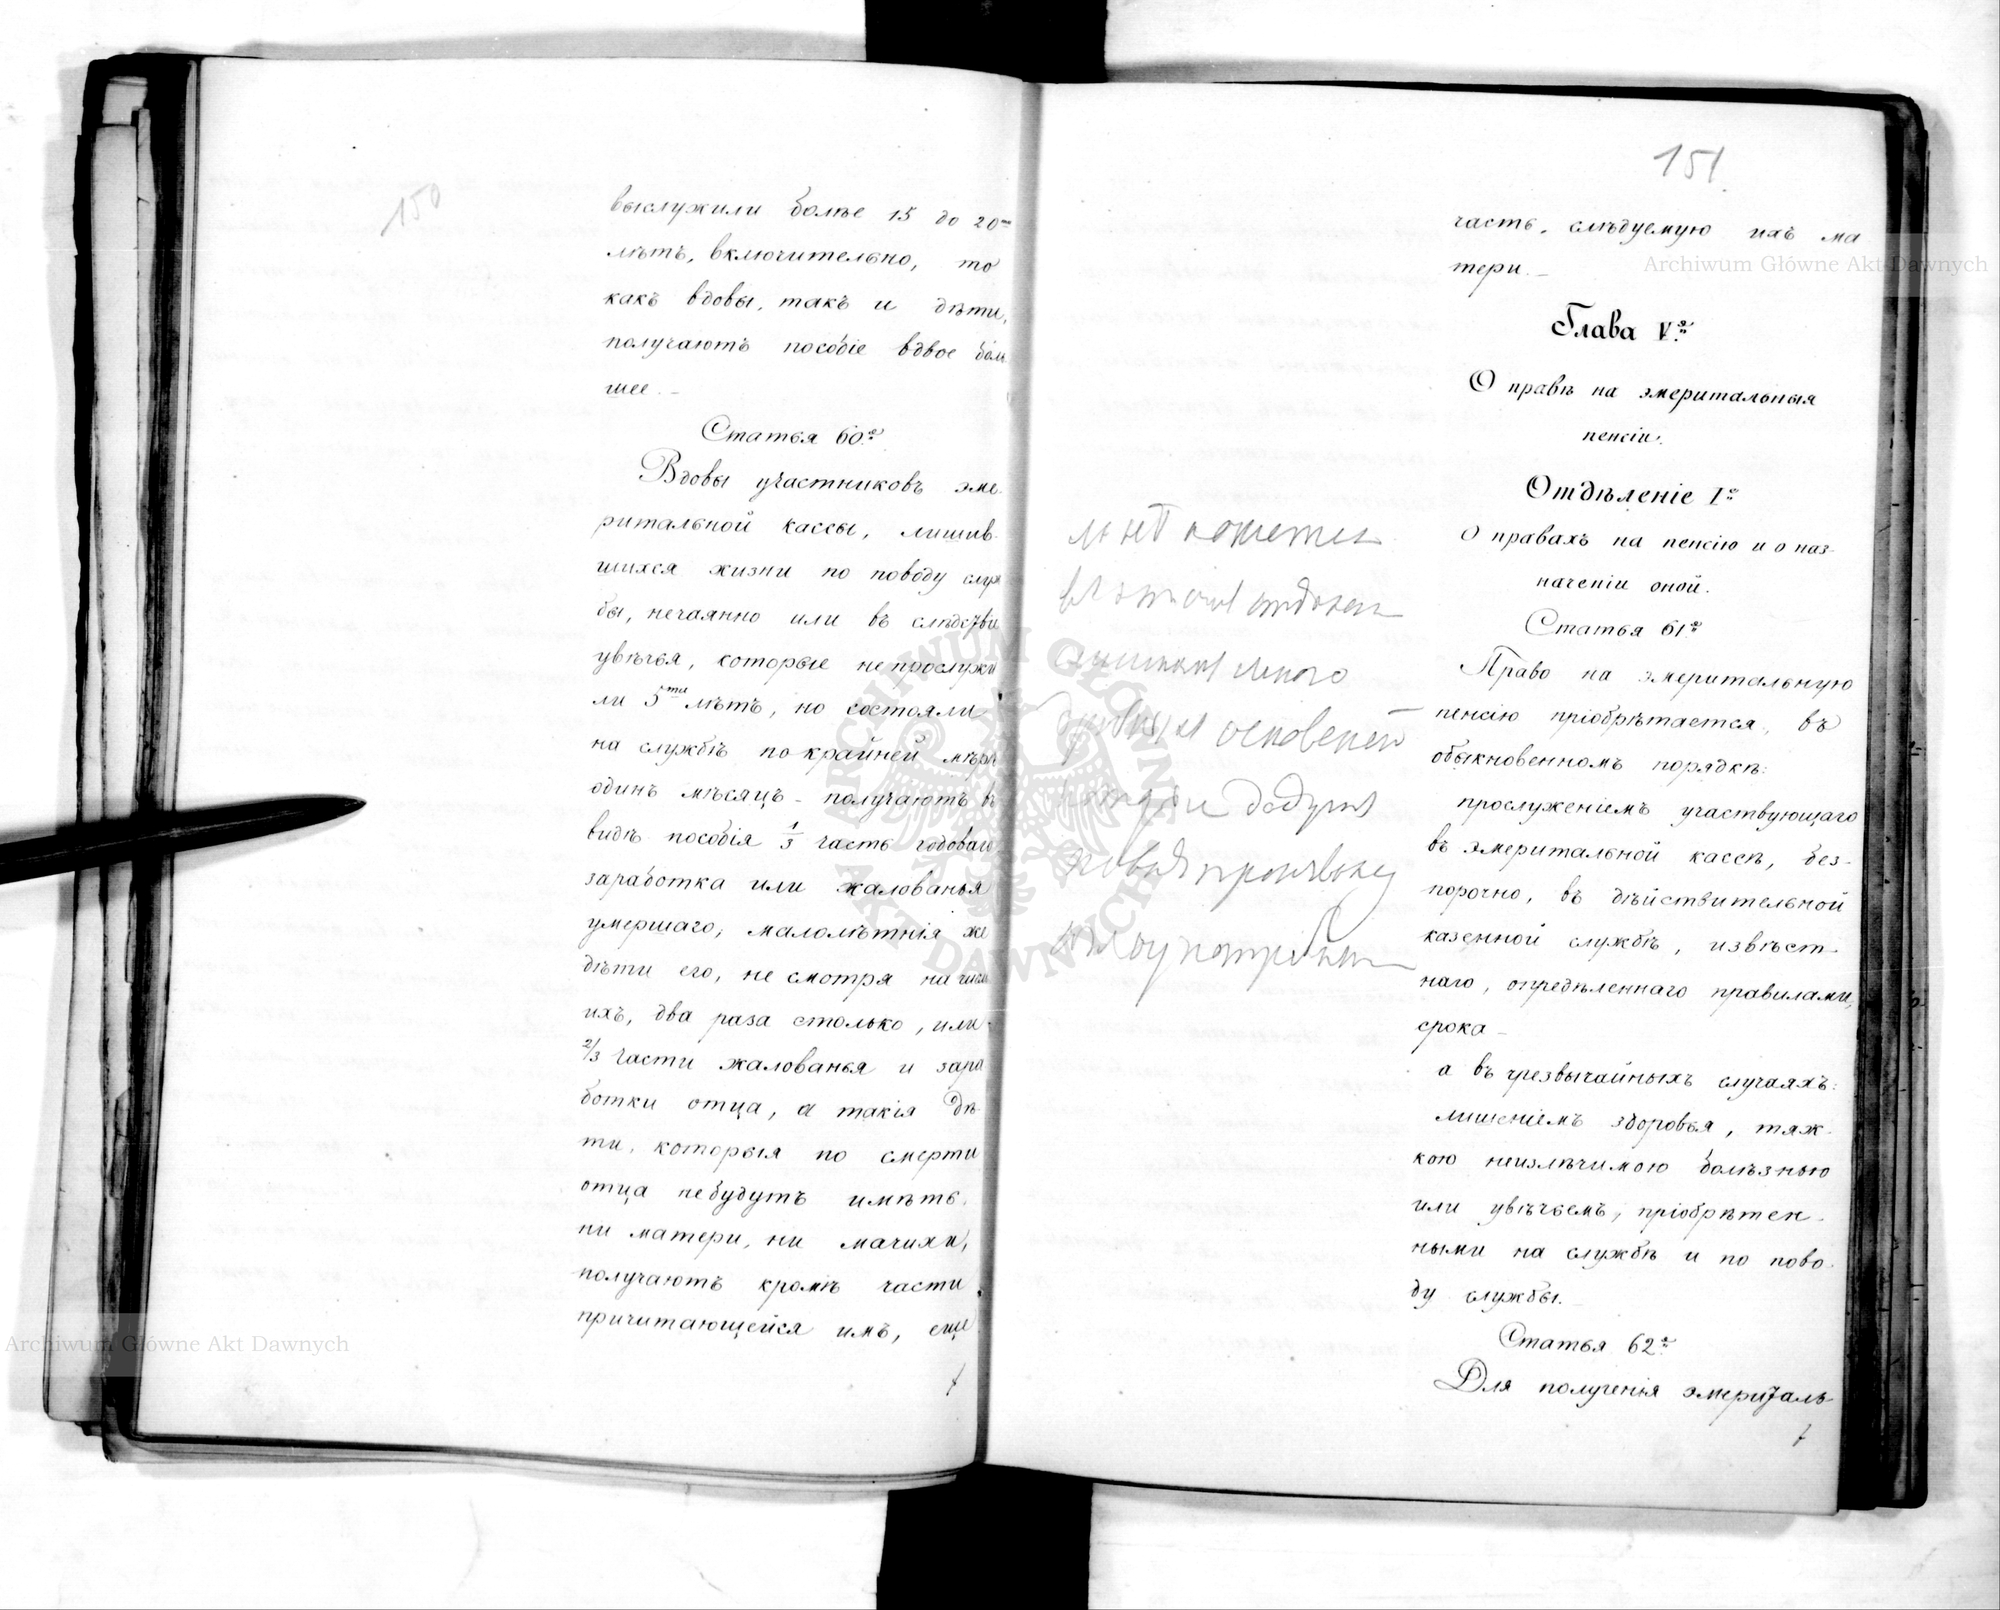 150
выслужили болѣе 15 до 20
лѣтъ, включительно, то
какъ вдовы, такъ и дѣти,
получаютъ пособіе вдвое боль
шее. –
Статья 60.
Вдовы участниковъ эме-
ритальной кассы, лишив-
шихся жизни по поводу служ
бы, нечаянно или въ слѣдстви
увѣчья, которые не прослужи
ли 5ти лѣтъ, но состояли
на службѣ по крайней мѣрѣ
одинъ мѣсяцъ – получаютъ въ
видѣ пособія 1/3 часть годоваго
заработка или жалованья
умершаго; малолѣтнія же
дѣти его, не смотря на число
ихъ, два раза столько, или
2/3 части жалованья и зара
ботки отца, а такія дѣ-
ти, которыя по смерти
отца небудутъ имѣть
ни матери, ни мачихи,
получаютъ кромѣ части
причитающейся имъ, еще
151.
часть, слѣдуемую ихъ ма
тери. –
Глава V.
О правѣ на эмеритальныя
пенсіи.
Отдѣленіе I.
О правахъ на пенсію и о наз-
наченіи оной.
Статья 61.
Право на эмеритальную
пенсію пріобрѣтается, въ
обыкновенномъ порядкѣ:
прослуженіемъ участвующаго
въ эмеритальной кассѣ, без-
порочно, въ дѣйствительной
казенной службѣ, извѣст-
наго, опредѣленнаго правилами,
срока –
а въ чрезвычайныхъ случаяхъ:
лишеніемъ здоровья, тяж-
кою неизлѣчимою болѣзнью
или увѣчьемъ, пріобрѣтен-
ными на службѣ и по пово-
ду службы. –
Статья 62.
Для полученія эмериталь
много
Archiwum Główne Akt Dawnych
Archiwum Główne Akt Dawnych
ARCHIWUM GŁÓWNE AKT DAWNYCH